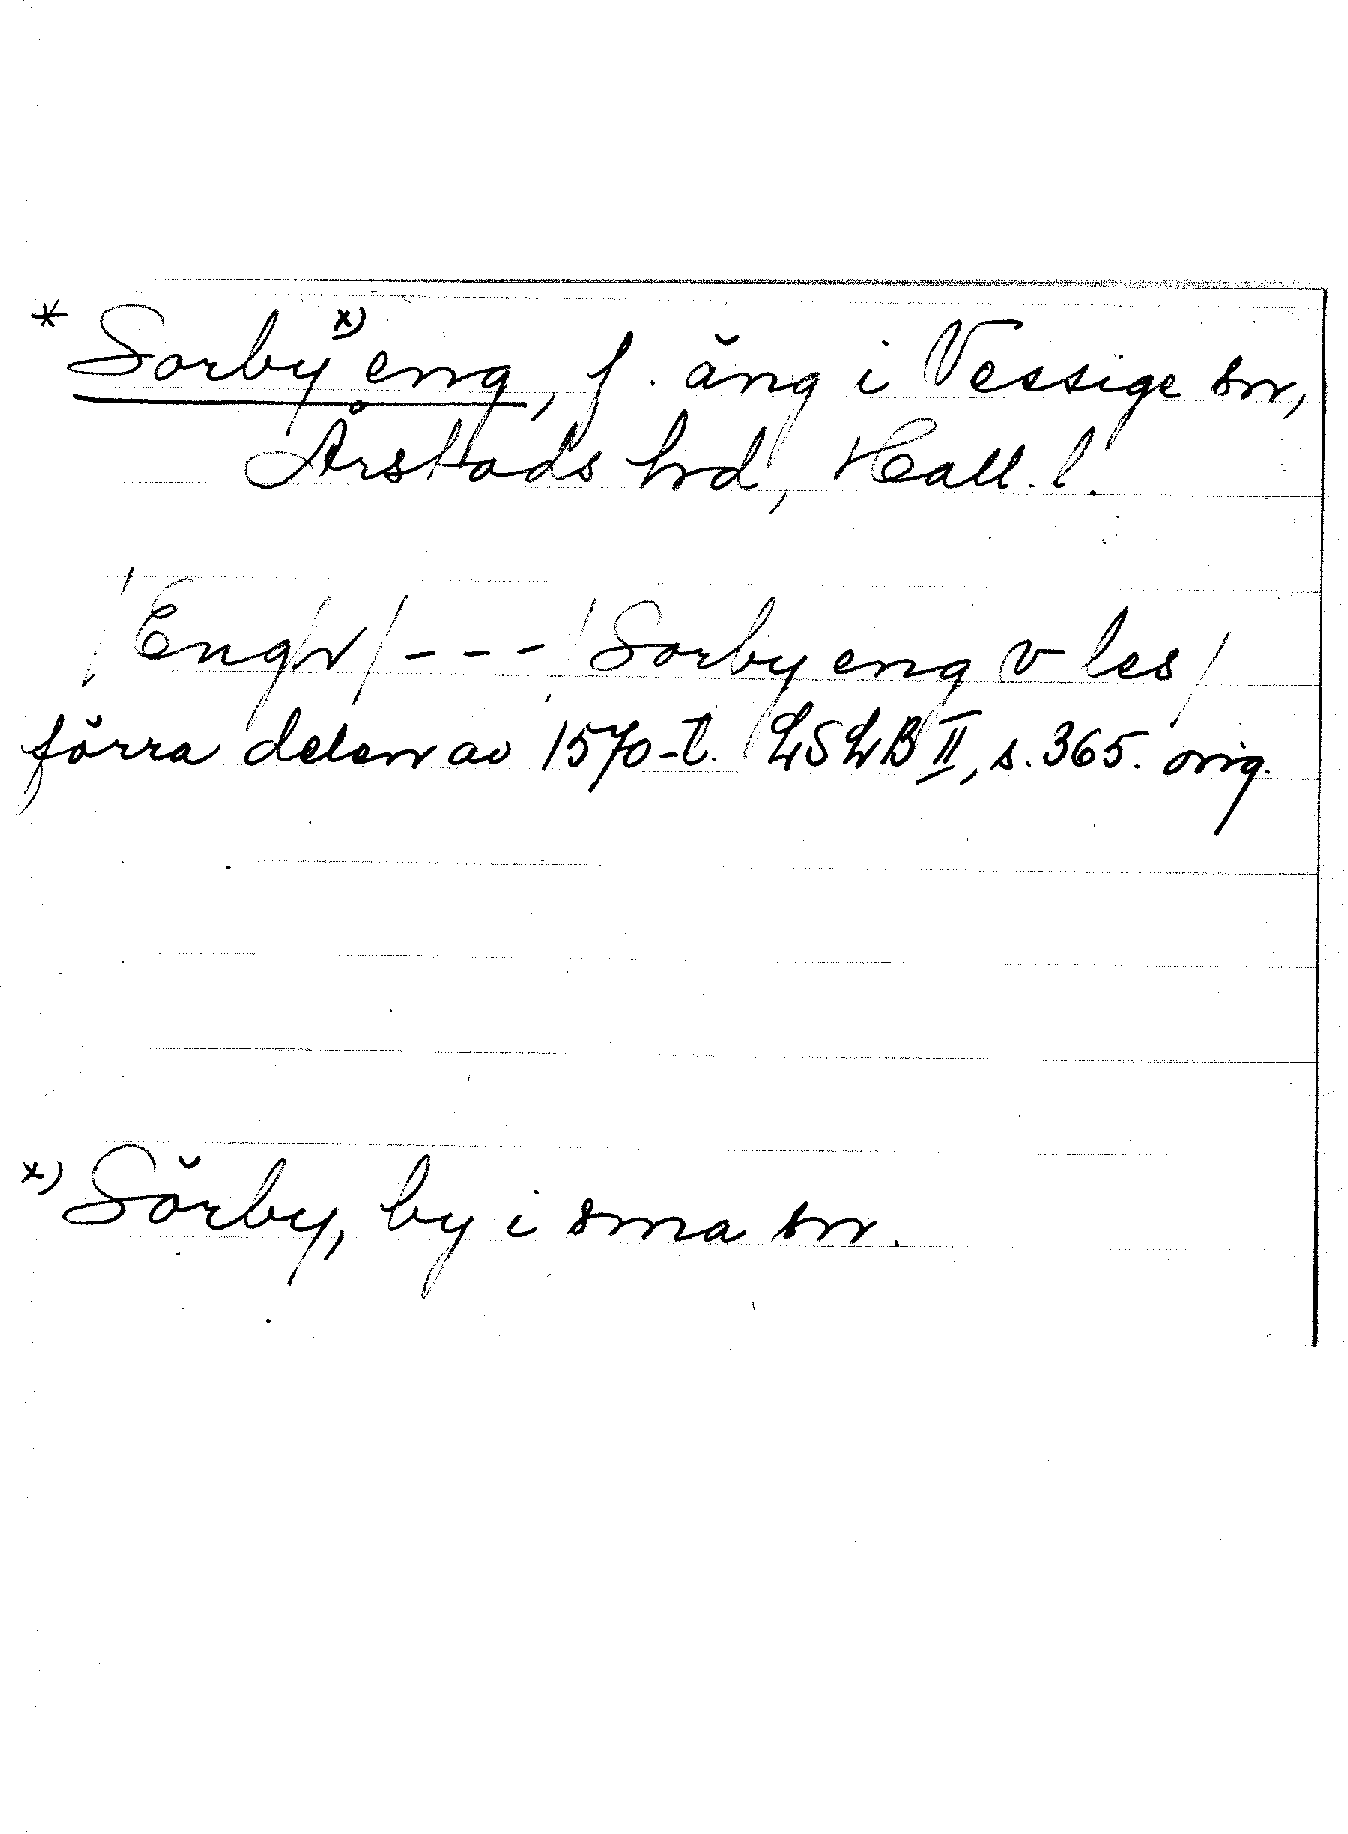 * Sorby x) eng, f. äng i Vessige sn,
Årstads hd, Hall. l.
/Engh/ - - - /Sorby eng v les/
förra delen av 1570-t. LSLB II, s. 365. orig.
x) Sörby, by i sma sn.